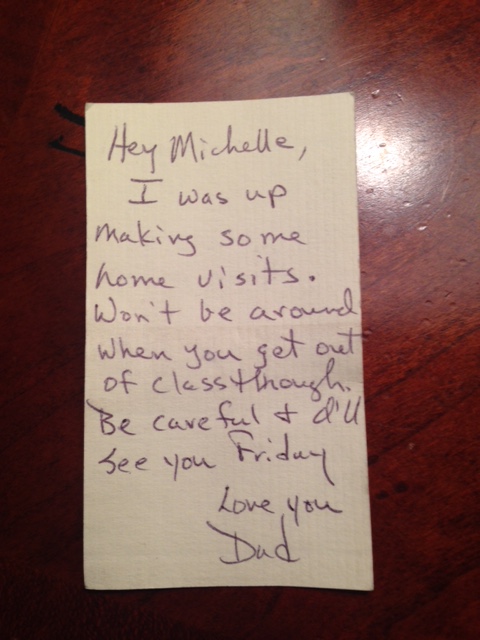 Hey Michelle,
I was up
making some
home visits.
Won't be around
when you get out
of class though.
Be careful & I'll
see you Friday
Love you
Dad